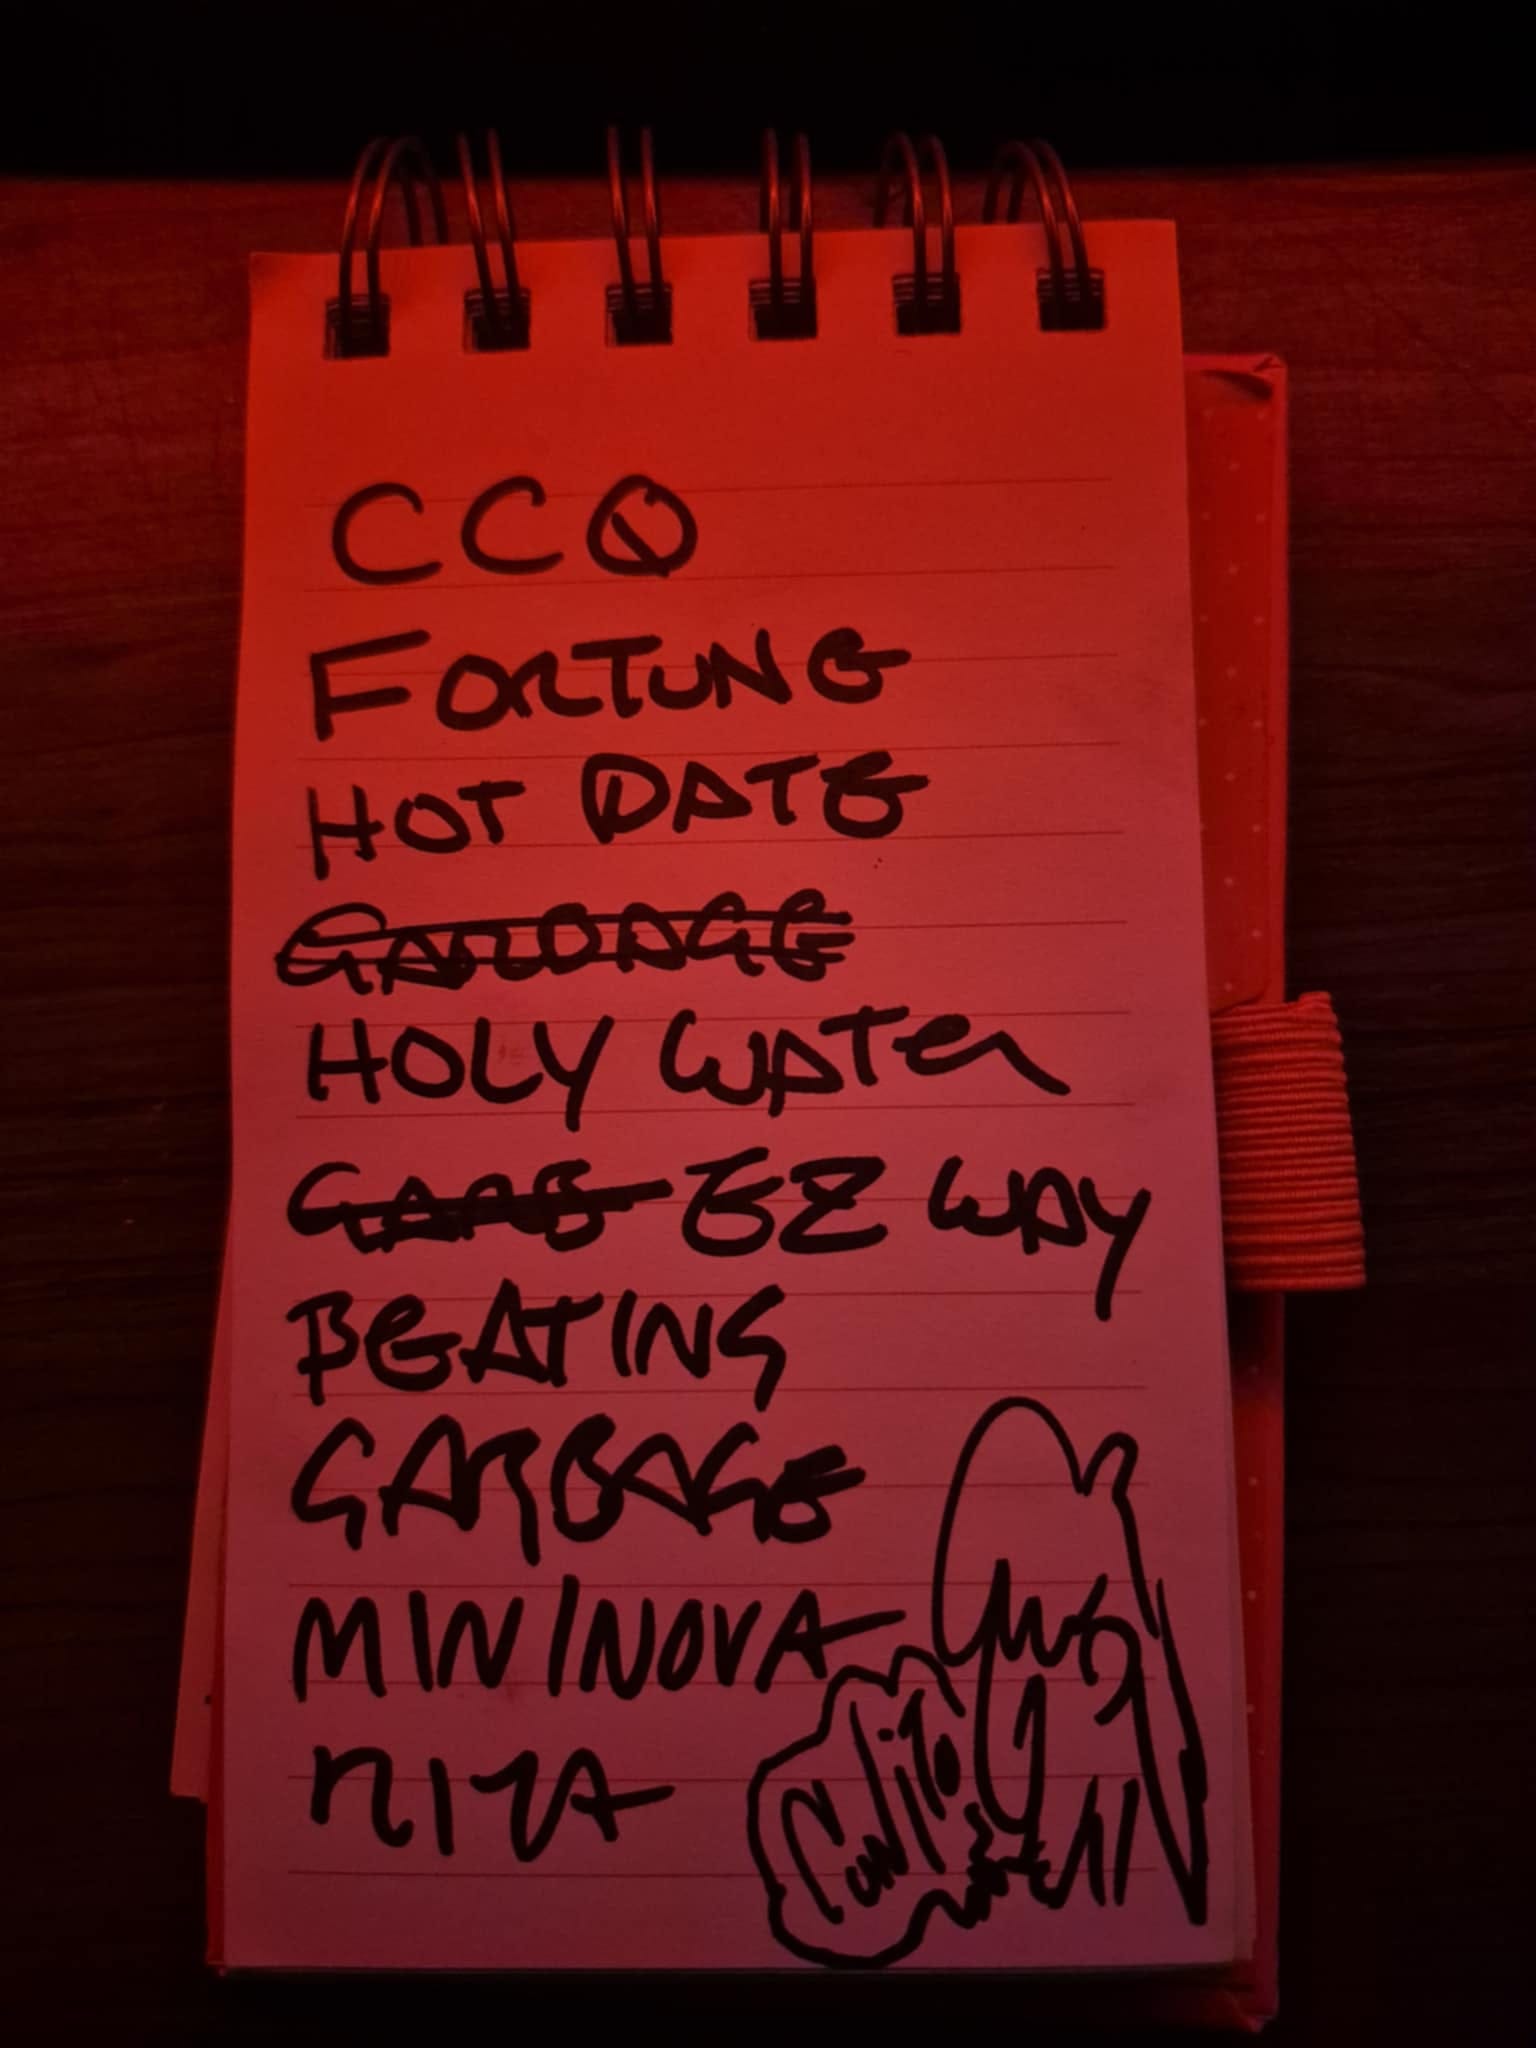 CCQ
FORTUNE
HOT DATE
GARBAGE
HOLY WATER
GARB EZ WAY
BEATING
GARBAGE
MININOVA
RIZA